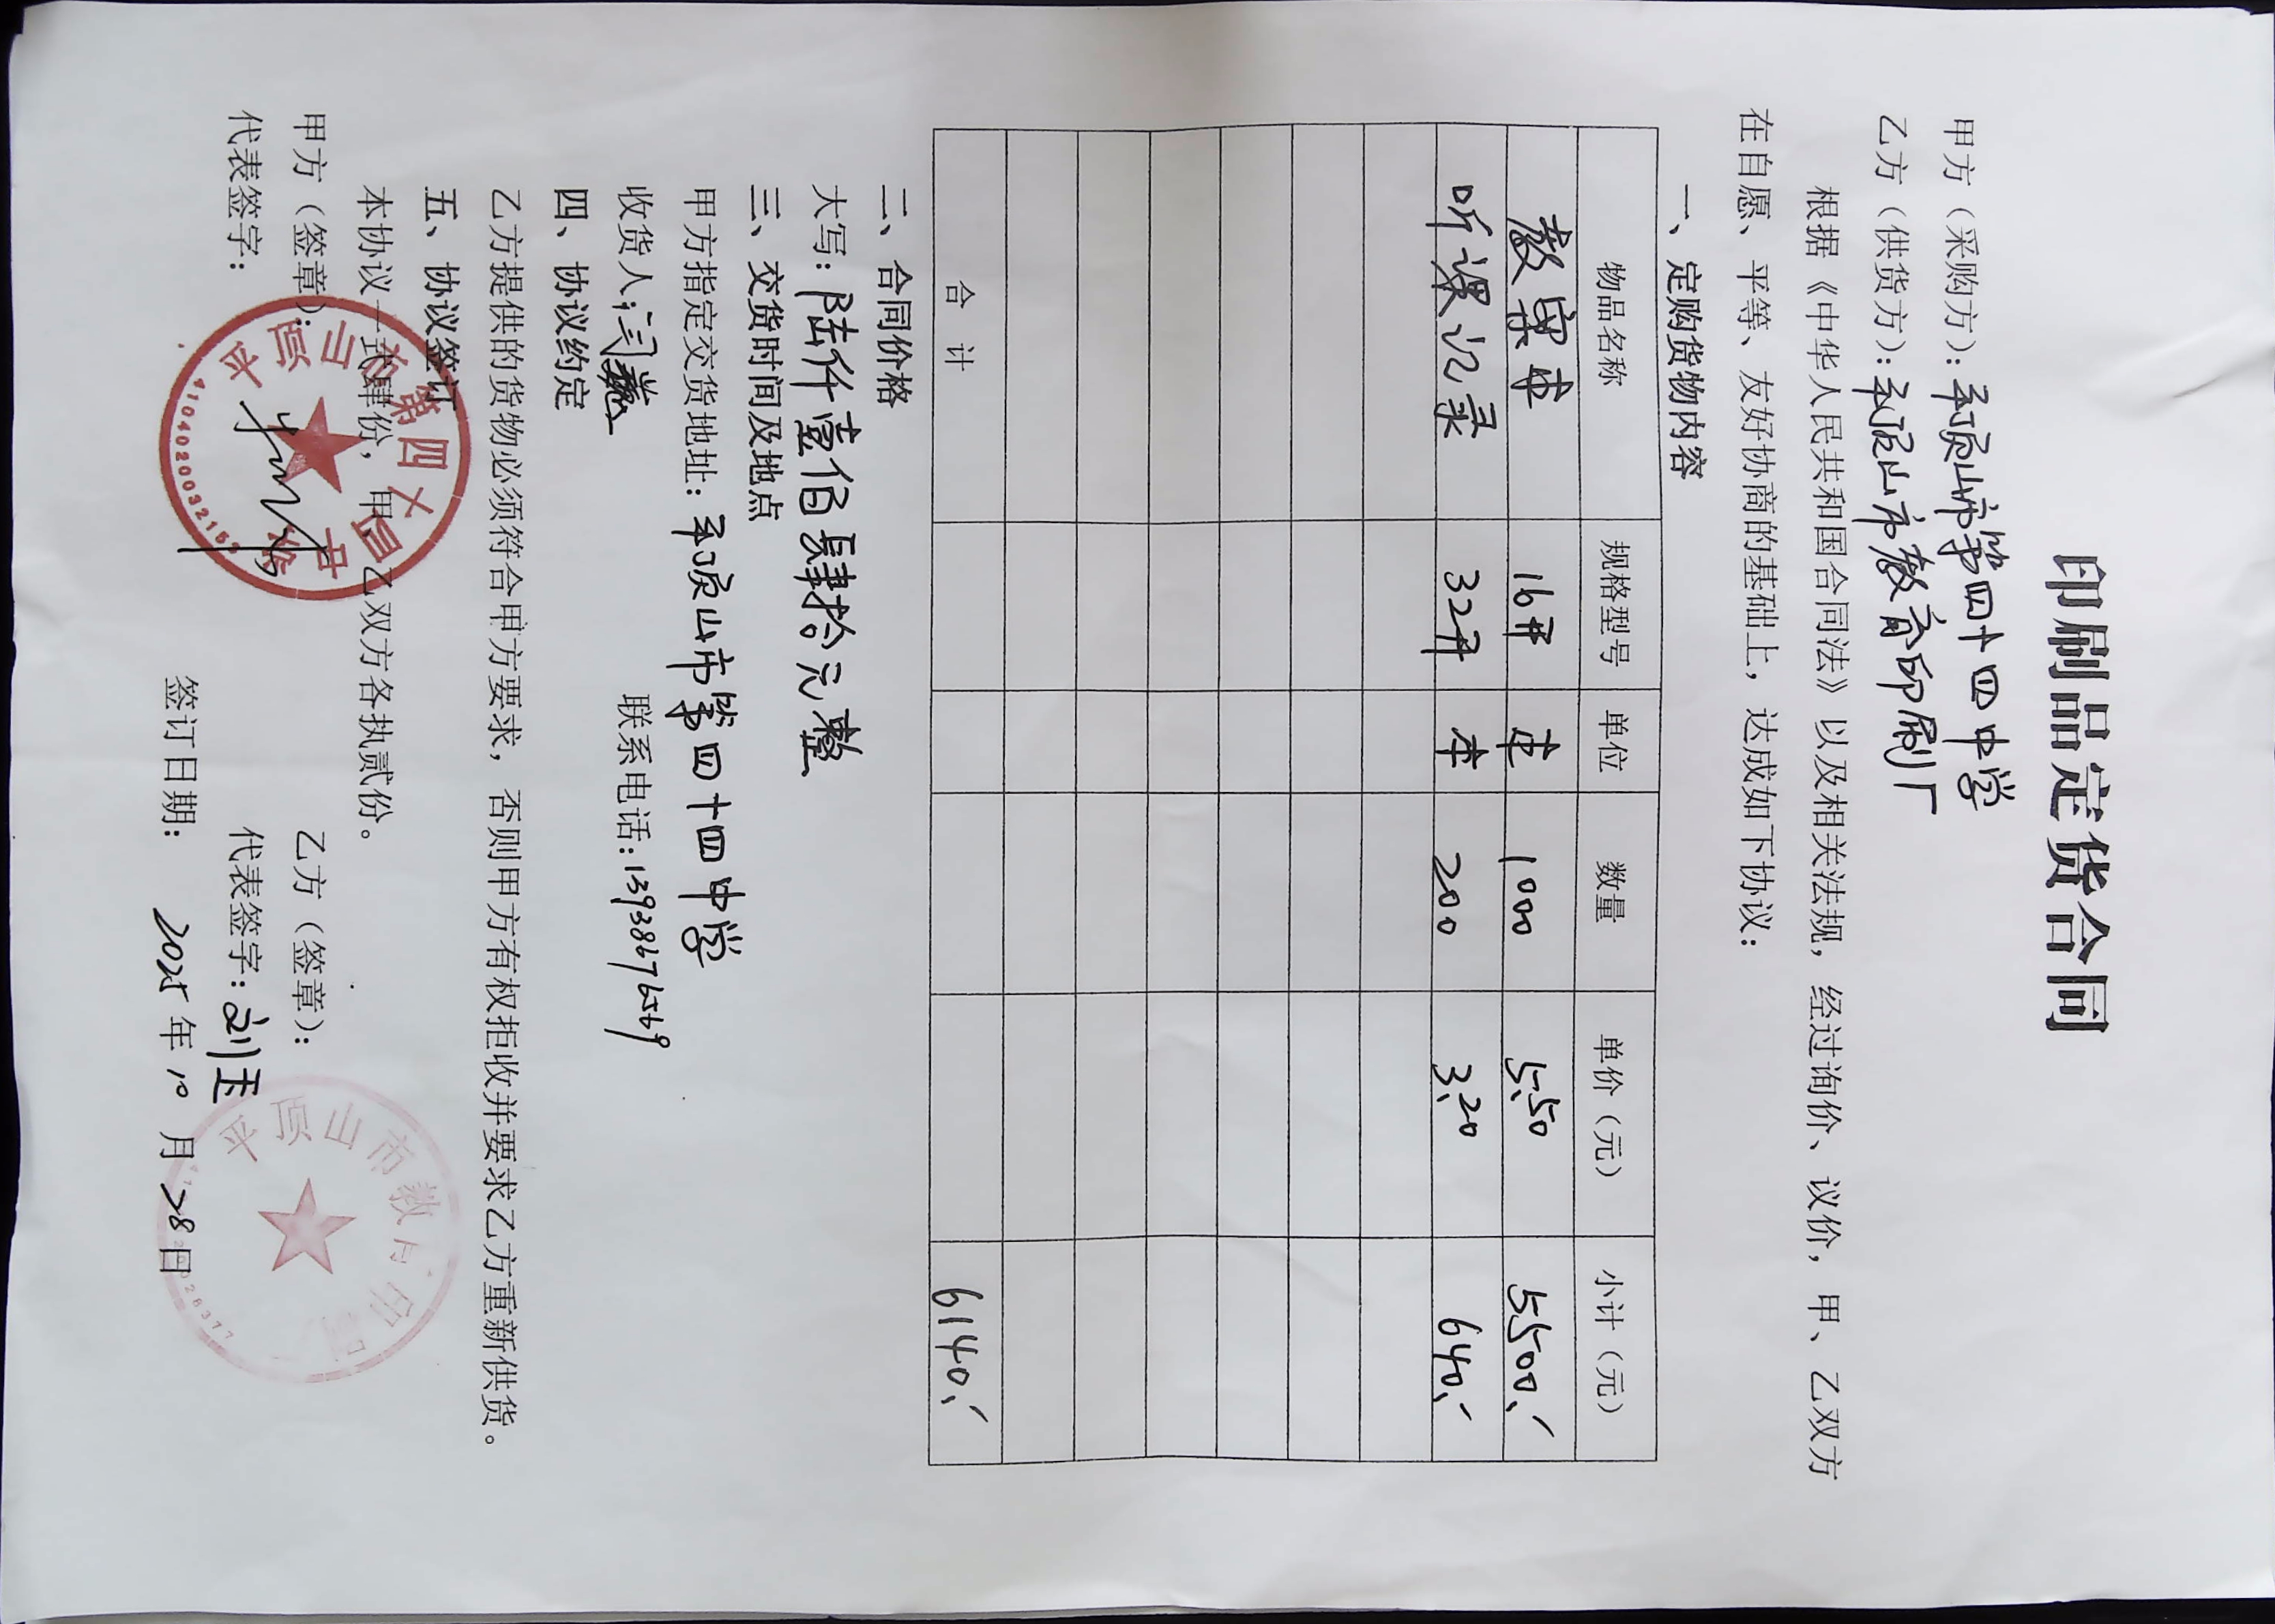 印刷品定货合同
甲方（采购方）：平顶山市第四十四中学
乙方（供货方）：平顶山市教育印刷厂
根据《中华人民共和国合同法》以及相关法规，经过询价、议价，甲、乙双方
在自愿、平等、友好协商的基础上，达成如下协议：
一、定购货物内容
物品名称 规格型号 单位 数量 单价（元） 小计（元）
教案本 16开 本 1000 5.50 5500.-
听课记录 32开 本 200 3.20 640.-
合 计 6140.-
二、合同价格
大写：陆仟壹佰肆拾元整
三、交货时间及地点
甲方指定交货地址：平顶山市第四十四中学
收货人： 联系电话：13938676569
四、协议约定
乙方提供的货物必须符合甲方要求，否则甲方有权拒收并要求乙方重新供货。
五、协议签订
本协议一式肆份，甲、乙双方各执贰份。
甲方（签章）： 乙方（签章）：
代表签字： 代表签字：刘玉
签订日期： 2025年10月28日
平顶山市第四十四中学
平顶山市教育印刷厂